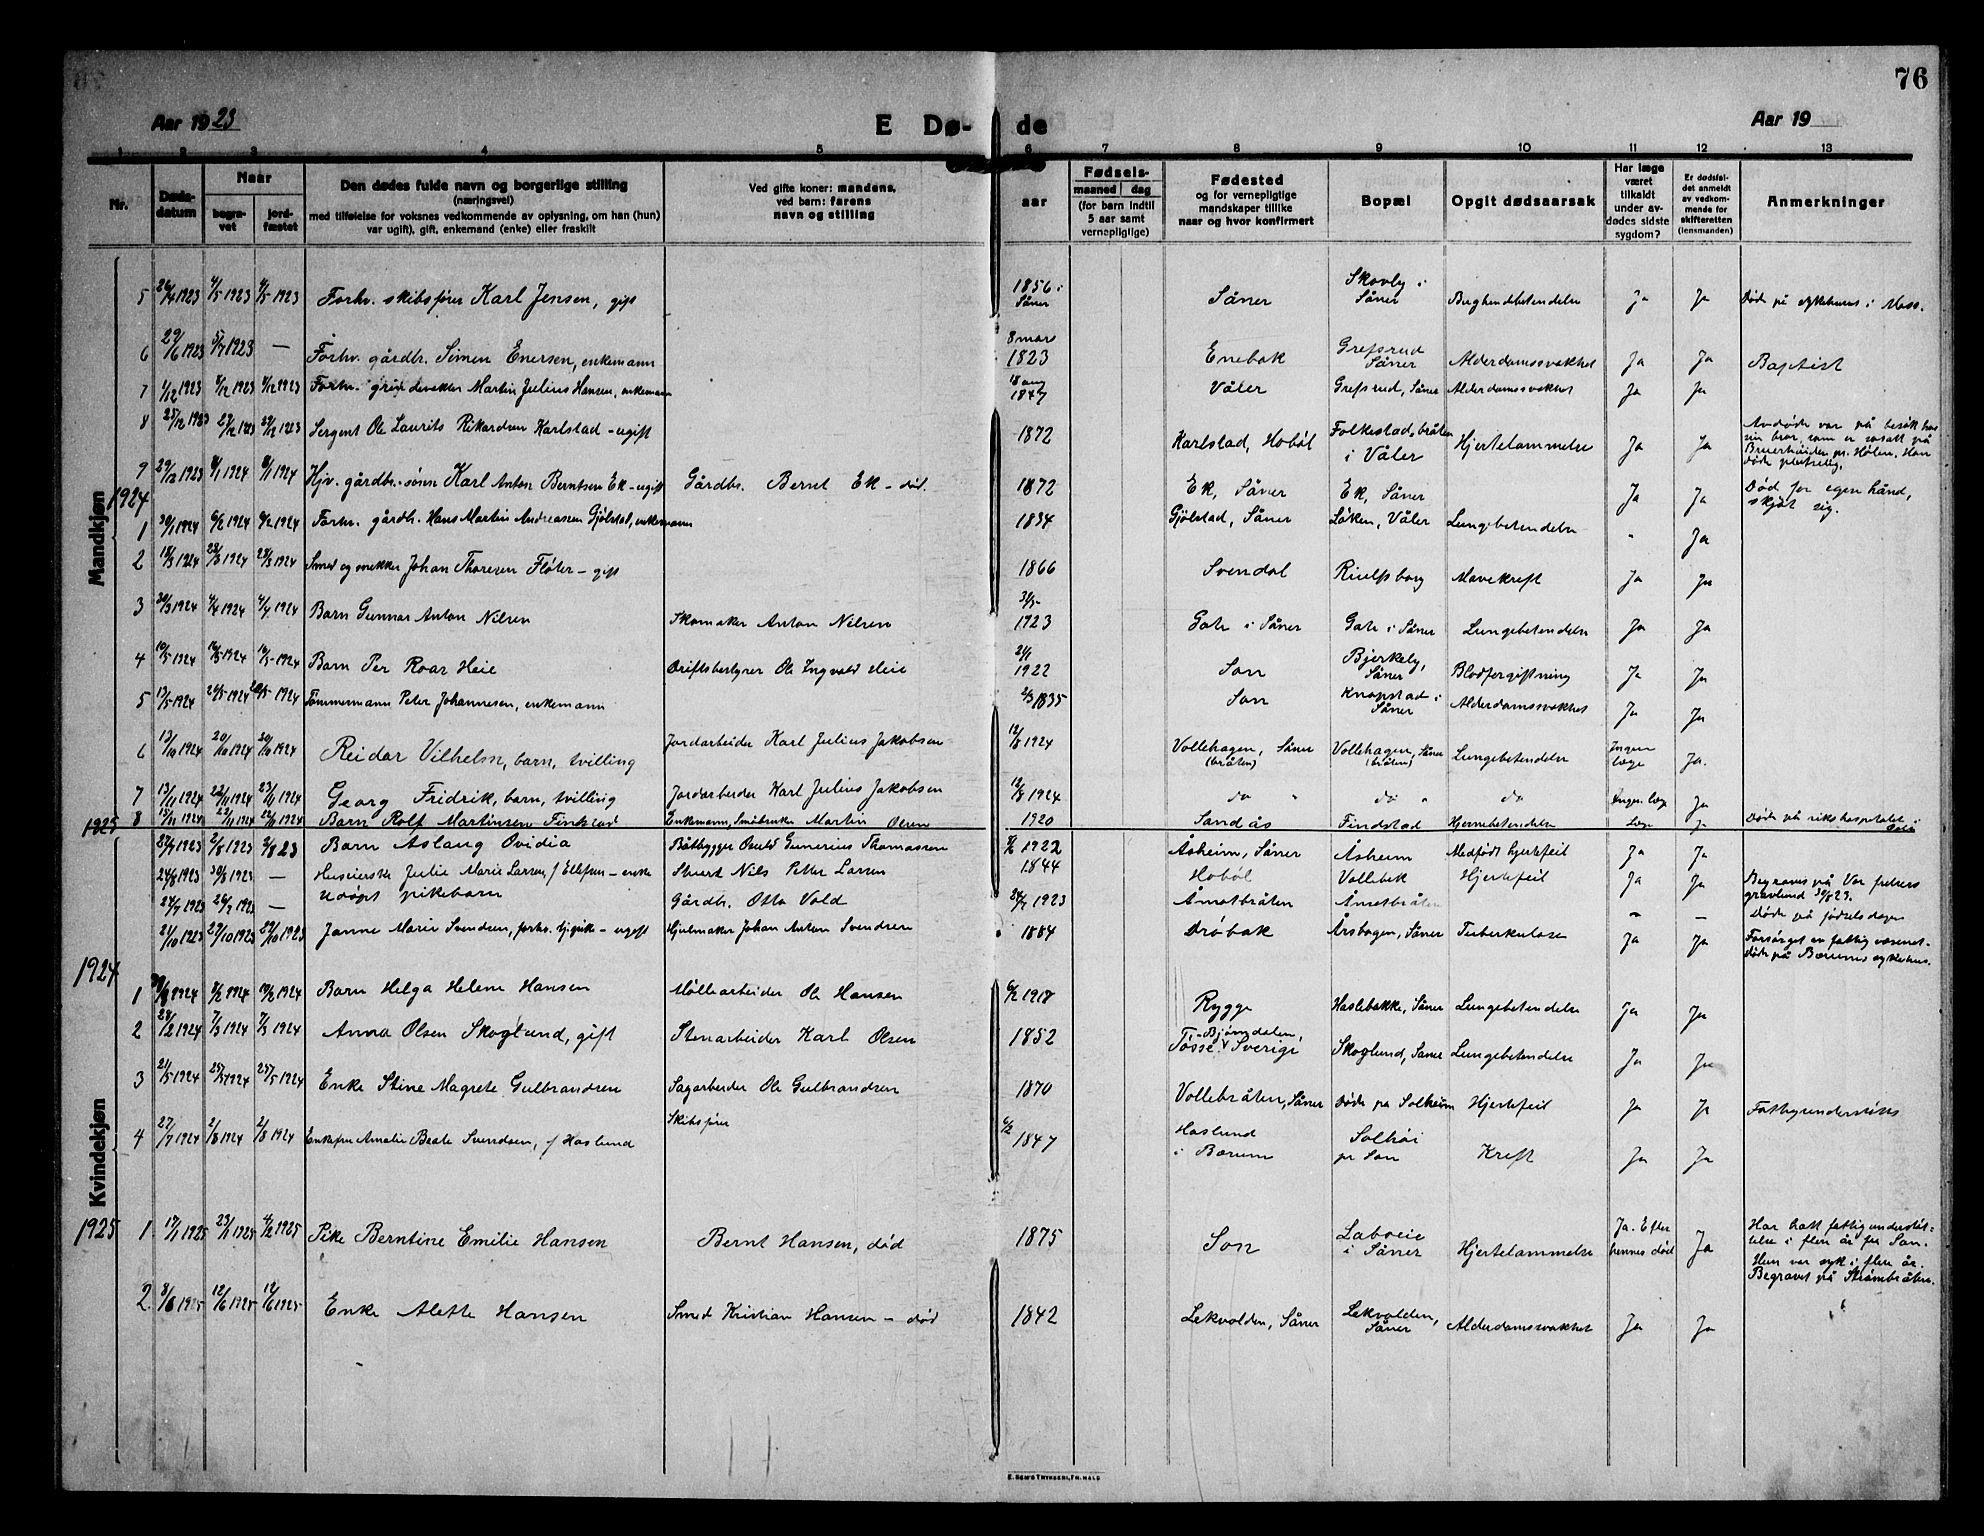 76
Aar 1923
E Dø- de
Aar 19
1 2 3 4 5 6 7 8 9 10 11 12 13
Nr.
Døds-datum
Naar
begra-vet
jord-fæstet
Den dødes fulde navn og borgerlige stilling
(næringsvei)
med tilføielse for voksnes vedkommende av oplysning, om han (hun)
var ugift), gift, enkemand (enke) eller fraskilt
Ved gifte koner: mandens,
ved barn: farens
navn og stilling
aar
Fødsels-
maaned dag
(for barn indtil
5 aar samt
vernepligtige)
Fødested
og for vernepligtige
mandskaper tillike
naar og hvor konfirmert
Bopæl
Opgit dødsaarsak
Har læge
været
tilkaldt
under av-
dødes sidste
sygdom?
Er dødsfal-
det anmeldt
av vedkom-
mende for
skifteretten
(lensmanden)
Anmerkninger
Mandkjøn
5 26/4 1923 4/5 1923 4/5 1923 Forhv. skibsfører Karl Jensen, gift 1856 i Såner Såner Skovly i Såner Bughindebetendelse Ja Ja Døde på sykehuset i Moss.
6 29/6 1923 5/7 1923 — Forhv. gårdbr. Simen Enersen, enkemann 8 mars 1823 Enebak Grefsrud Såner Alderdomssvakhet Ja Ja Baptist
7 1/12 1923 4/12 1923 4/12 1923 Forhv. Martin Julius Hansen, enkemann 18 aug 1847 Våler Grefsrud, Såner Alderdomssvakhet Ja Ja
8 25/12 1923 29/12 1923 29/12 1923 Sergent Ole Laurits Rikardsen Karlstad – ugift 1872 Karlstad, Hobøl Folkestad, bråten i Våler Hjertelammelse Ja Ja Avdøde var på besøk hos sin bror, som er bosatt på pr. Hølen. Han døde plutselig.
9 29/12 1923 8/1 1924 8/1 1924 Hjv. gårdbr.-sønn Karl Anton Berntsen Ek – ugift Gårdbr. Bernt Ek – død. 1872 Ek, Såner Ek, Såner Ja Ja Død for egen hånd, skjøt sig.
1924
1 30/1 1924 6/2 1924 6/2 1924 Forhv. gårdbr. Hans Martin Andreassen Gjølstad, enkemann 1834 Gjølstad, Såner Løken, Våler Lungebetendelse " Ja
2 18/3 1924 28/3 1924 28/3 1924 Smed og snekker Johan Thoresen Fløter – gift 1866 Svendal Riulfsborg Mavekreft Ja Ja
3 30/3 1924 4/4 1924 4/4 1924 Barn Gunnar Anton Nilsen Skomaker Anton Nilsen 31/5 1923 Gate i Såner Gate i Såner Lungebetendelse Ja Ja
4 10/5 1924 16/5 1924 16/5 1924 Barn Per Roar Heie Driftsbestyrer Ole Ingvald Heie 21/1 1922 Son Bjerkely, Såner Blodforgiftning Ja Ja
5 13/5 1924 20/5 1924 20/5 1924 Tømmermann Peter Johannesen, enkemann 2/3 1835 Son Knapstad i Såner Alderdomssvakhet Ja Ja
6 13/10 1924 20/10 1924 20/10 1924 Reidar Vilhelm, barn, tvilling Jordarbeider Karl Julius Jakobsen 12/8 1924 Vollehagen, Såner (bråten) Vollehagen, Såner (bråten) Lungebetendelse Ingen læge Ja.
7 13/11 1924 22/11 1924 23/11 1924 Georg Fridrik, barn, tvilling Jordarbeider Karl Julius Jakobsen 12/8 1924 do " do " do Ingen læge Ja
8 15/11 1924 22/11 1924 22/11 1924 Barn Rolf Martinsen Findstad Enkemann, Småbruker Martin Olsen 1920 Sandås Findstad Hjernebetendelse Ja Døde på rikshospitalet i Oslo
1925
Kvindekjøn
27/7 1923 2/8 1923 2/8 23 Barn Aslaug Ovidia Båtbygger Gunerius Thomassen 1922 Åsheim, Såner Åsheim Medfødt hjertefeil Ja Ja
24/8 1923 30/8 1923 — Huseierske Julie Marie Larsen, f Ellefsen – enke Stuert Nils Petter Larsen 1844 Hobøl Vollebek Hjertefeil Ja Ja Begraves på Vor frelsers gravlund 30/8 23.
24/7 1923 26/7 1923 — Udøpt pikebarn Gårdbr. Otto Vold 24/7 1923 Åmotbråten Åmotbråten – – Døde på fødselsdagen
21/10 1923 29/10 1923 29/10 1923 Janne Marie Svendsen, forhv. tj.pike – ugift Hjulmaker Johan Anton Svendsen 1884 Drøbak Årsbogen, Såner Tuberkulose Ja Ja Forsørget av fattigvæsenet – døde på Bærums sykehus.
1924
1 1924 1924 1924 Barn Helga Helene Hansen Møllearbeider Ole Hansen 6/2 1918 Rygge Haslebakke, Såner Lungebetendelse Ja Ja
2 28/2 1924 7/3 1924 7/3 1924 Anna Olsen Skoglund, gift Stenarbeider Karl Olsen 1852 Bjørndalen, Tösse, Sverige Skoglund, Såner Lungebetendelse Ja Ja
3 21/5 1924 25/5 1924 25/5 1924 Enke Stine Magrete Gulbrandsen Sagarbeider Ole Gulbrandsen 1870 Vollebråten, Såner Døde på Solheim Hjertefeil Ja Ja Fattigunderstøttet
4 27/7 1924 2/8 1924 2/8 1924 Enkefru Amalie Beate Svendsen, f Haslund Skibsfører 6/2 1847 Haslund i Bærum Solhøi pr Son Kreft Ja Ja
1925
1 17/1 1925 23/1 1925 4/2 1925 Pike Berntine Emilie Hansen Bernt Hansen, død 1875 Son Laboeie i Såner Hjertelammelse Ja. Efter hennes død Ja Har hatt fattigunderstøt-telse i flere år fra Son. Hun var syk i flere år. Begravet på Strømbråten.
2 8/6 1925 12/6 1925 12/6 1925 Enke Alette Hansen Smed Kristian Hansen – død 1842 Lekvolden, Såner Lekvolden, Såner Alderdomssvakhet Ja Ja
E. SEM'S TRYKKERI, FR.HALD